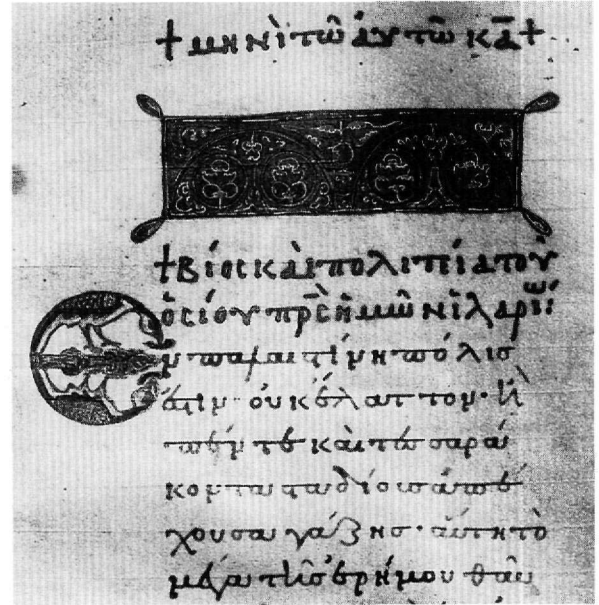 + μηνὶ τῶ αὐτῶ κα +
+ Βίος καὶ πολιτεία τοῦ
ὁσίου πρς ἡμῶν ἱλαρίω:
Ἐν παλαιστίνη πόλισ
ἐστιν· οὐκ ἔλαττον· ἢ
πέντε καὶ τεσσαρά
κοντα σταδίοισ ἀπέ
χουσα γάζησ· αὕτη τὸ
μέγα τῆσ ἐρήμου θαῦ